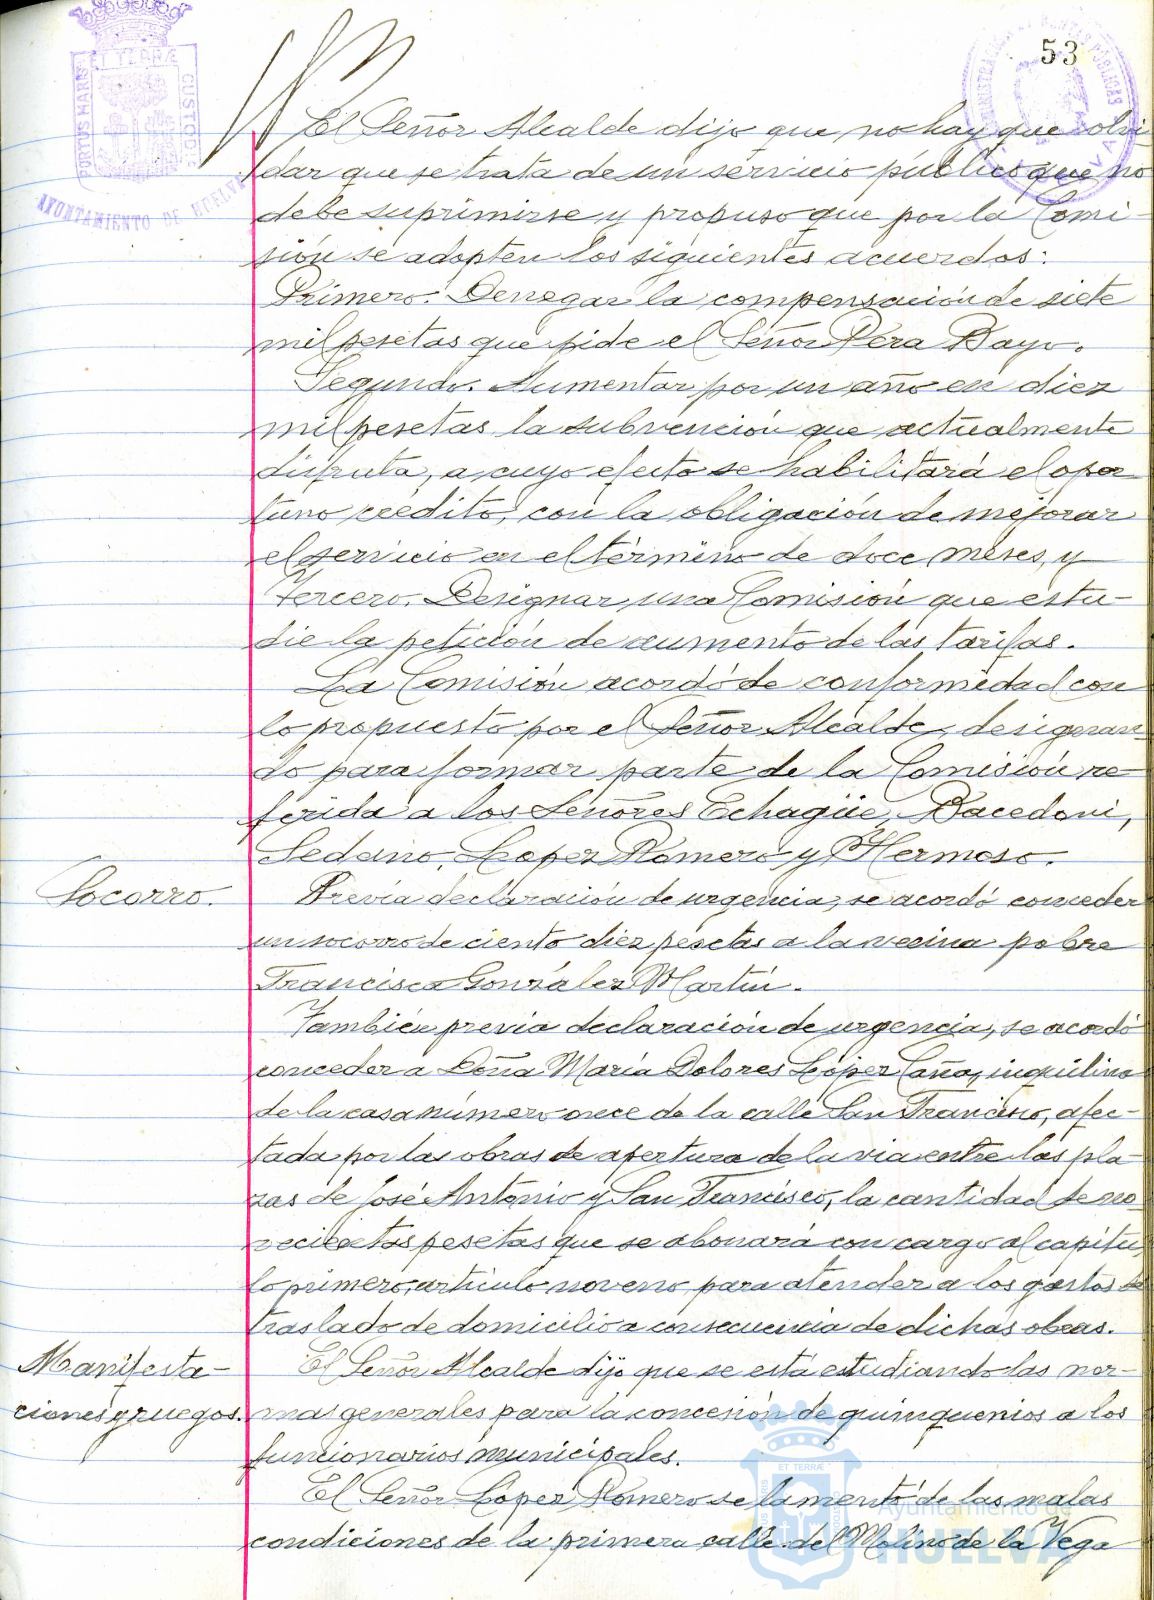 53
PORTUS MARIS ET TERRÆ CUSTODIA
AYUNTAMIENTO DE HUELVA
El Señor Alcalde dijo que no hay que olvi-
dar que se trata de un servicio público que no
debe suprimirse y propuso que por la Comi-
sión se adopten los siguientes acuerdos:
Primero. Denegar la compensación de siete
mil pesetas que pide el Señor Pera Bayo.
Segundo. Aumentar por un año en diez
mil pesetas la subvención que actualmente
disfruta, a cuyo efecto se habilitará el opor-
tuno crédito, con la obligación de mejorar
el servicio en el término de doce meses, y
Tercero. Designar una Comisión que estu-
die la petición de aumento de las tarifas.
La Comisión acordó de conformidad con
lo propuesto por el Señor Alcalde, designan-
do para formar parte de la Comisión re-
ferida a los Señores Echagüe, Bacedoni,
Sedano, López Romero y Hermoso.
Socorro.
Previa declaración de urgencia, se acordó conceder
un socorro de ciento diez pesetas a la vecina pobre
Francisca González Martín.
También previa declaración de urgencia, se acordó
conceder a Doña María Dolores López Caña, inquilina
de la casa número once de la calle San Francisco, afec-
tada por las obras de apertura de la via entre las pla-
zas de José Antonio y San Francisco, la cantidad de no-
vecientas pesetas que se abonará con cargo al capitu-
lo primero, artículo noveno, para atender a los gastos de
traslado de domicilio a consecuencia de dichas obras.
Manifesta-
ciones y ruegos.
El Señor Alcalde dijo que se está estudiando las nor-
mas generales para la concesión de quinquenios a los
funcionarios municipales.
El Señor López Romero se lamentó de las malas
condiciones de la primera calle del Molino de la Vega
Ayuntamiento de
HUELVA